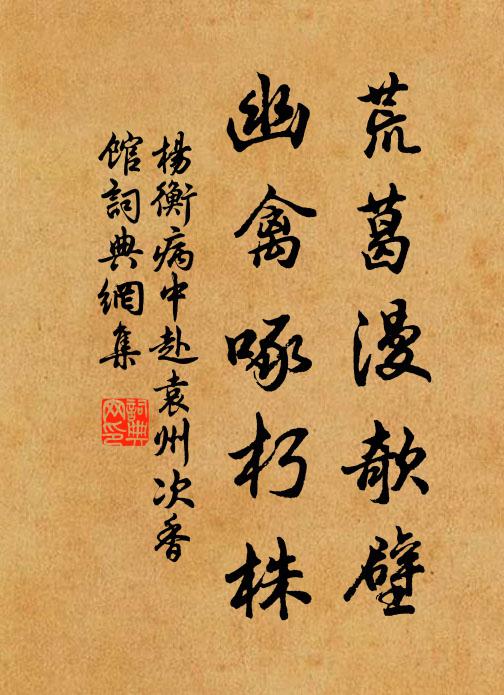 荒葛漫欹壁
幽禽啄朽株
楊衡病中赴袁州次香
館詞典網集
詞典
网印